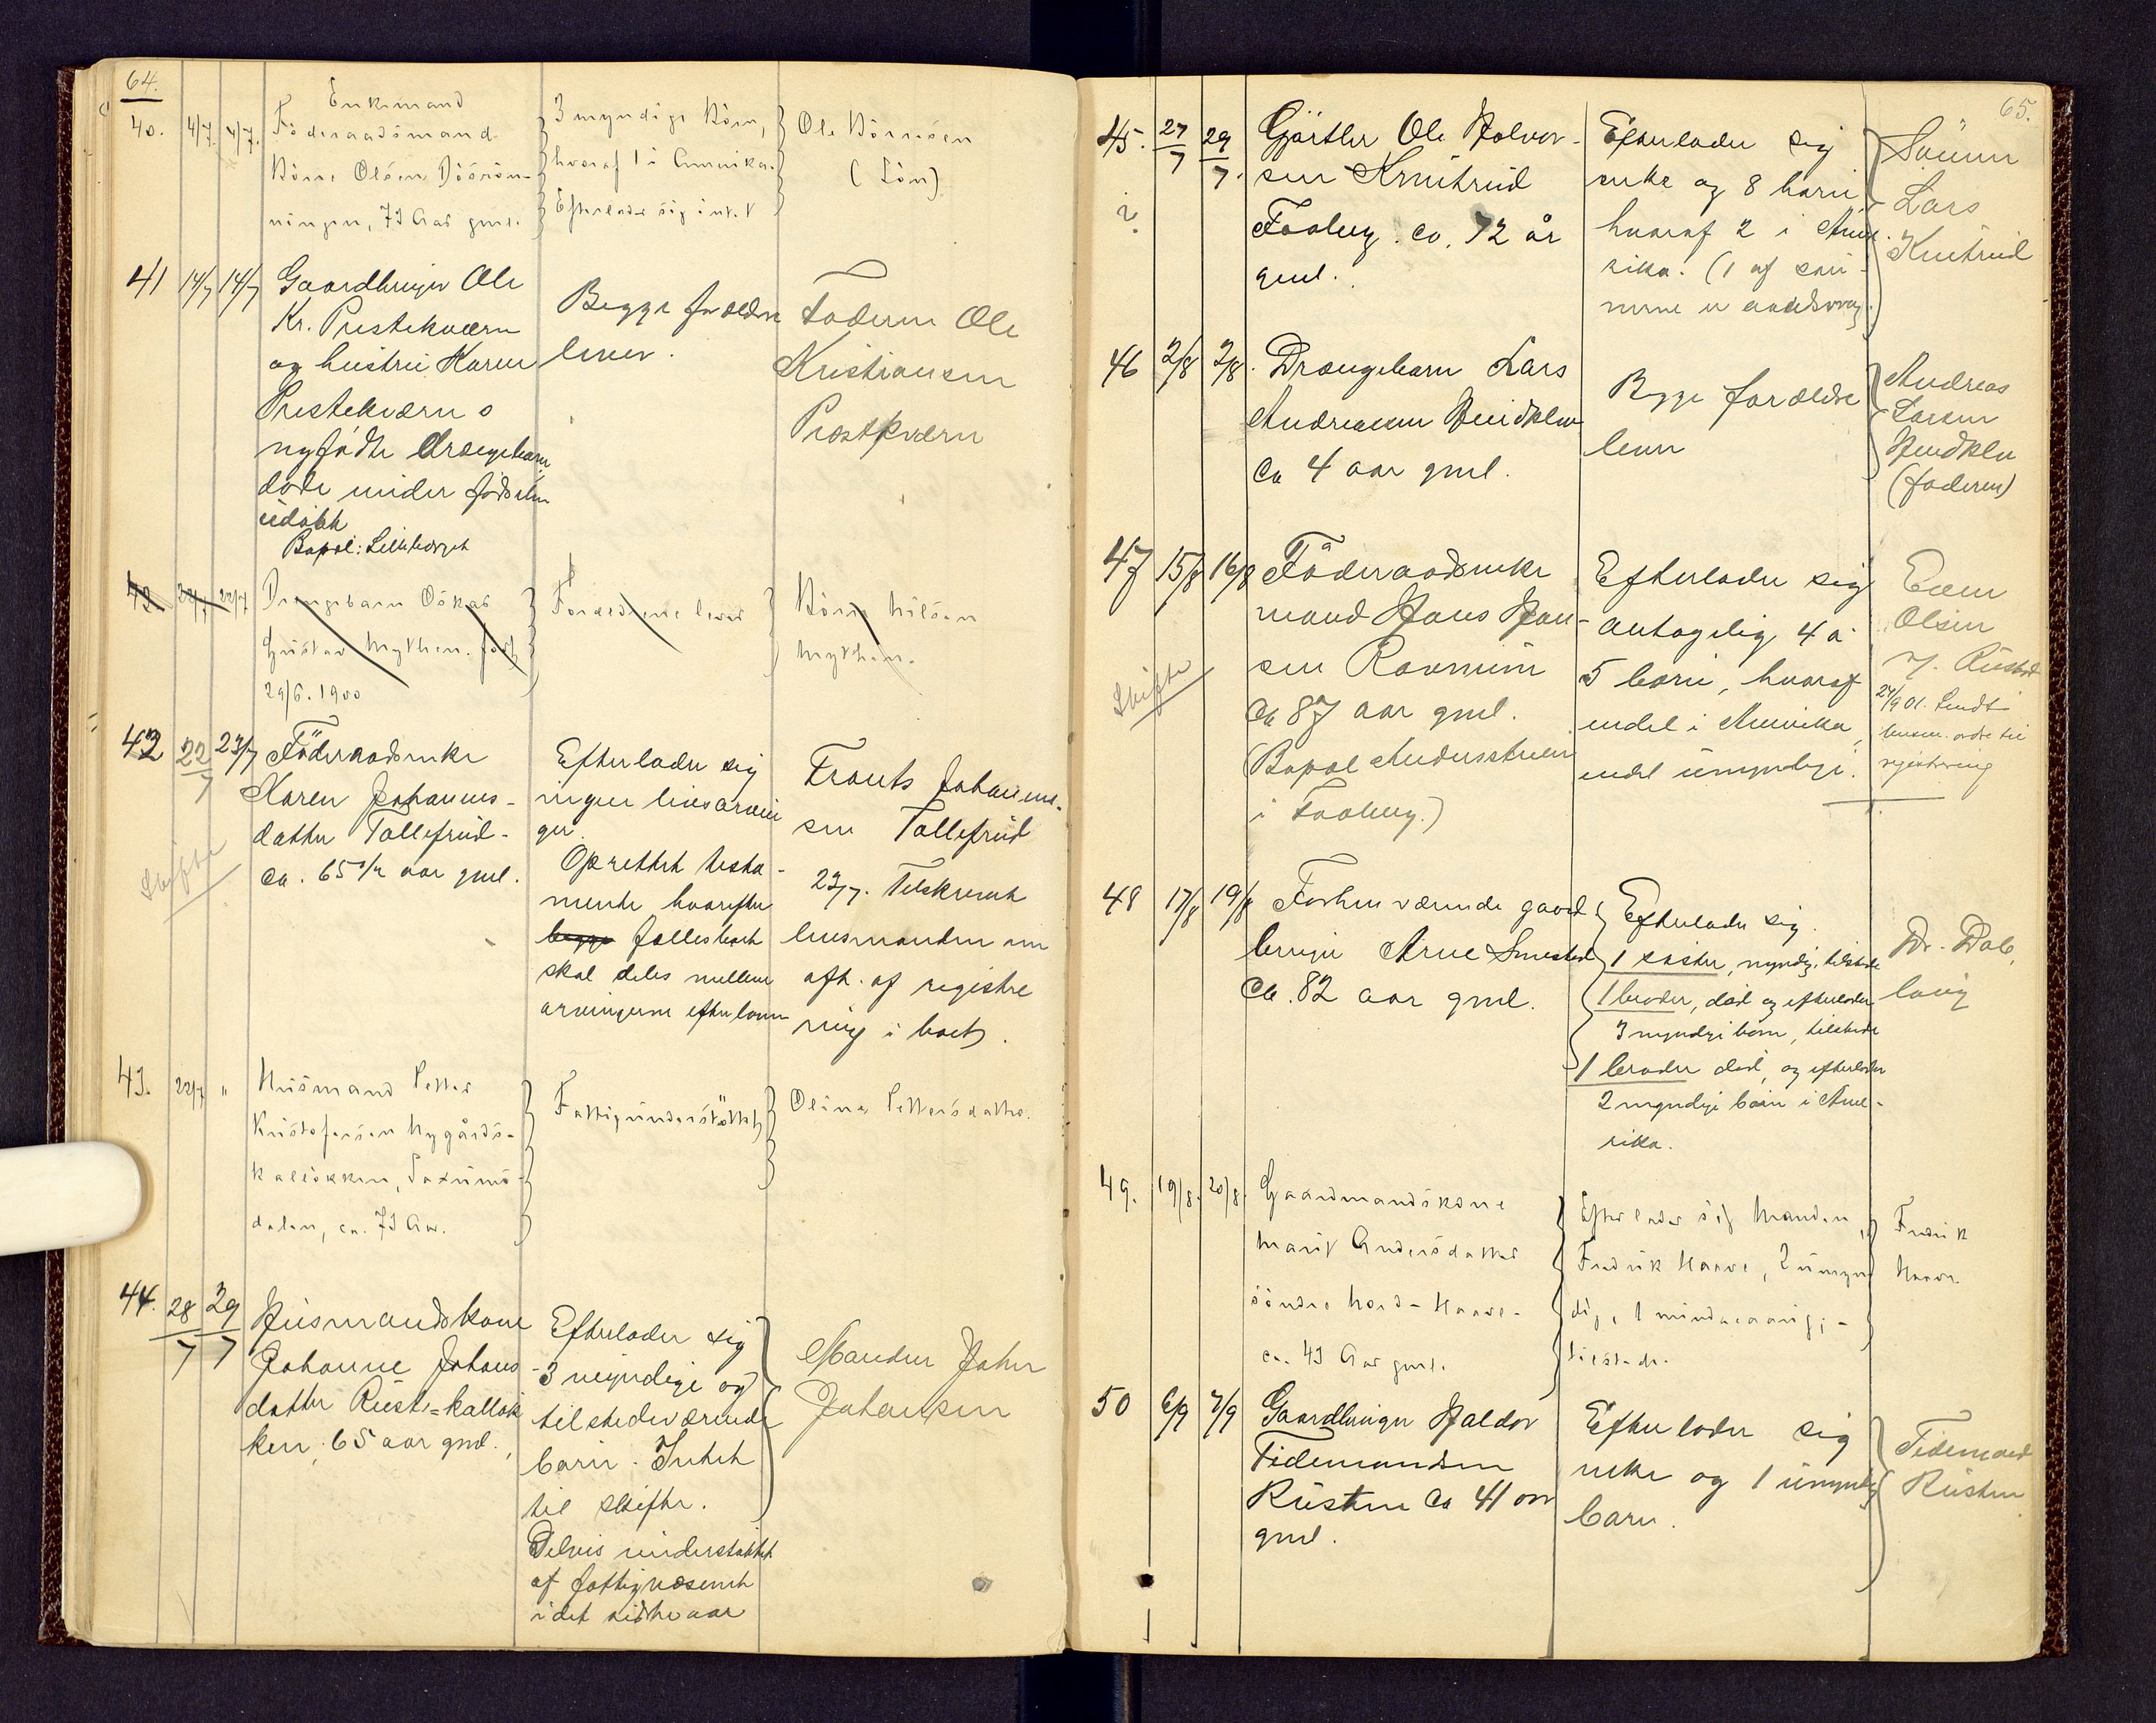 64.
40. 4/7. 4/7.
Enkemand
Föderaadsmand
Börre Olsen Dösrön-
ningen, 73 Aar gml.
3 myndige Börn,
hvoraf 1 i Amerika.
Efterlader sig intet
Ole Börresen
(Sön)
41 14/7 14/7
Gaardbruger Ole
Kr. Prestekværn
og hustru Karen
Prestekværns
nyfødte drengebarn
døde under fødselen
udøbt
Bopæl: Lillehammer
Begge forældre
lever.
Faderen Ole
Kristiansen
Prestkværn
42 22/7 22/7
Drengebarn Oskar
Gustav Mythen. født
29/6. 1900
Forældrene lever
Börre Nilsen
Mythen.
42 22/7 23/7
Föderaadsenke
Karen Johannes-
datter Tollefrud-
ca. 65 1/2 aar gml.
Skifte
Efterlader sig
ingen livsarvin
ger.
Oprettet testa-
mente hvorefter
begge fællesboet
skal deles mellem
arvingerne efter loven
Frants Johannes-
sen Tollefrud
23/7. Tilskrevet
lensmanden om
afh. af registre
ring i boet.
43. 22/7 "
Husmand Petter
Kristofersen Nygårds-
kalløkken, Saxums-
dalen, ca. 73 Aar.
Fattigunderstöttet
Oline Pettersdatter.
44. 28/7 29/7
Husmandskone
Johanne Johans-
datter Ruste=kalløk
ken, 65 aar gml.
Efterlader sig
3 myndige og
tilstedeværende
børn. Intet
til skifte.
Delvis understøttet
af fattigvæsenet
i det sidste aar
Manden Johan
Johansen
65.
45. 27/7 29/7.
?
Gjørtler Ole Halvor-
sen Knutrud
Faaberg. ca. 72 år
gml.
Efterlader sig
enke og 8 børn
hvoraf 2 i Ame-
rika. (1 af søn-
nerne er aandssvag.)
Sønnen
Lars
Knutrud
46 2/8 2/8.
Drengebarn Lars
Andreassen Hundklev
ca 4 aar gml.
Begge forældre
lever
Andreas
Larsen
Hundklev
(faderen)
47 15/8 16/8
Skifte
Föderaadsenke
mand Hans Han-
sen Rovmun
ca 87 aar gml.
(Bopæl Anderstuen
i Faaberg.)
Efterlader sig
antagelig 4 à
5 børn, hvoraf
endel i Amerika,
endel umyndige.
Even
Olsen
n. Rustad
24/9 01. Sendt
lensm. ordre til
registrering
48 17/8 19/8
Forhenværende gaard
bruger Arne Smestad
ca. 82 aar gml.
Efterlader sig.
1 søster, myndig, tilstede
1 broder, död og efterlader
3 myndige børn, tilstede
1 broder död, og efterlader
2 myndige børn i Ame-
rika.
Dr. Dab,
lovig
49. 19/8. 20/8.
Gaardmandskone
Marit Andersdatter
söndre Nord-Haave-
ca. 43 Aar gml.
Efterlader sig Manden,
Fredrik Haave, 2 umyn
dig, 1 mindreaarig; -
tilstede.
Fredrik
Haave.
50 6/9 7/9
Gaardbruger Haldor
Tidemandsen
Rusten ca 41 aar
gml.
Efterlader sig
enke og 1 umyndig
barn.
Tidemand
Rusten